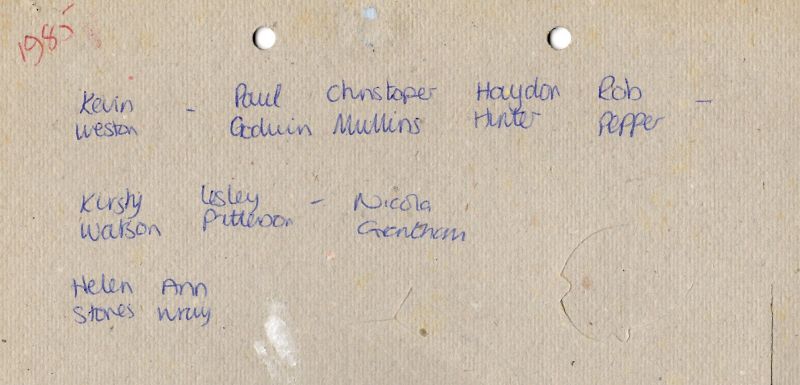 1985
Kevin - Paul Christoper Haydon Rob -
Weston Godwin Mullins Hunter Pepper
Kirsty Lesley - Nicola
Watson Patterson Grentham
Helen Ann
Stones Wray